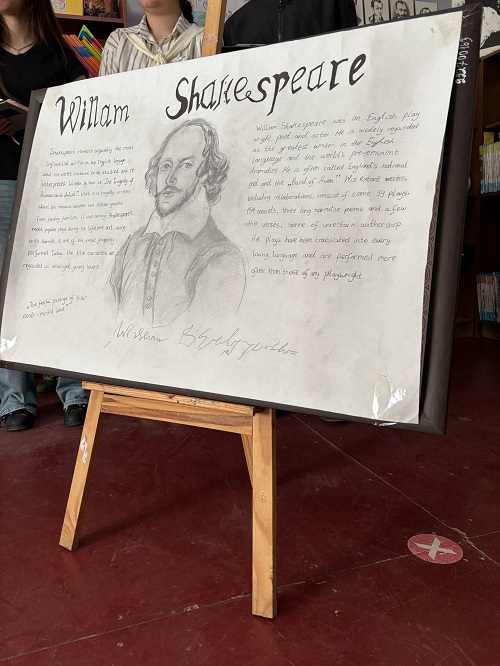 Willam Shakespeare
Shakespeare remains arguably the most
influential writer in the English language
and his work continue to be studied and re-
interpreted. Written by him is "The tragedy of
Romeo and Juliet". This is a tragedy written
about the romance between two Italian youths
from feuding families. It was among Shakespeare's
most popular plays during his lifetime and, along
with Hamlet, is one of his most frequently
performed. Today, the title characters are
regarded as archetypal young lovers.
"The fearful passage of their
death-mark'd love"
William Shakespeare was an English play
wright, poet and actor. He is widely regarded
as the greatest writer in the English
language and the world's pre-eminent
dramatist. He is often called England's national
poet and the "Bard of Avon". His extant works,
including collaborations, consist of some 39 plays,
154 sonnets, three long narrative poems and a few
other verses, some of uncertain authorship.
His plays have been translated into every
living language and are performed more
often than those of any playwright.